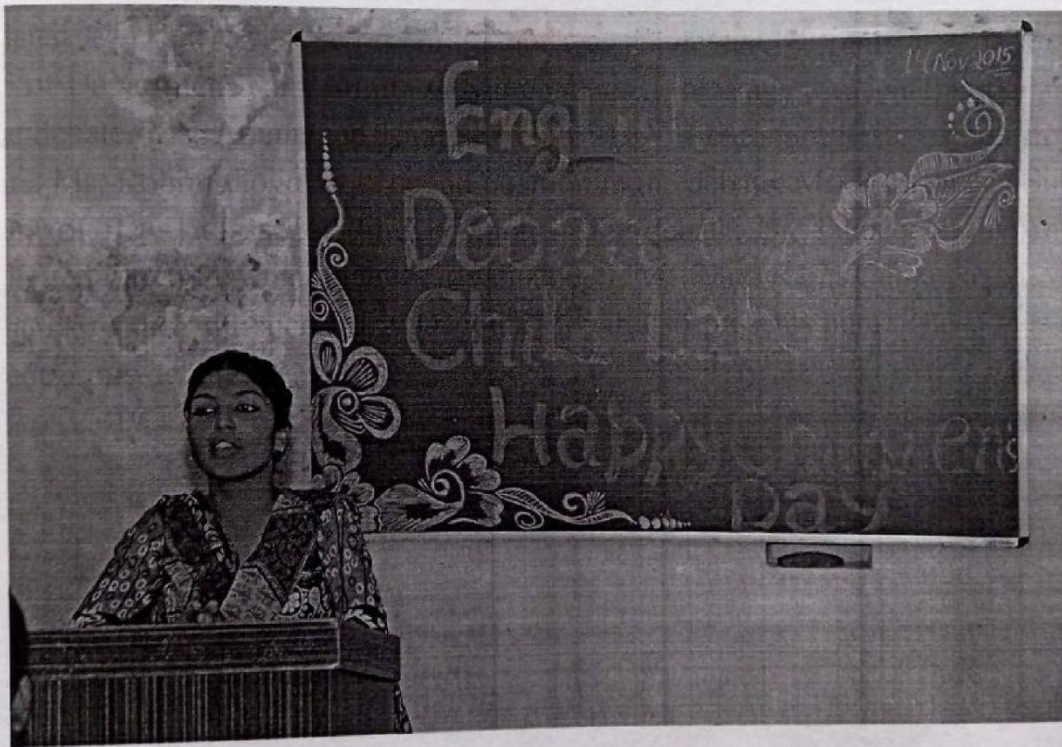 14 Nov 2015
English
Debate
Child Labour
Happy Children's
Day